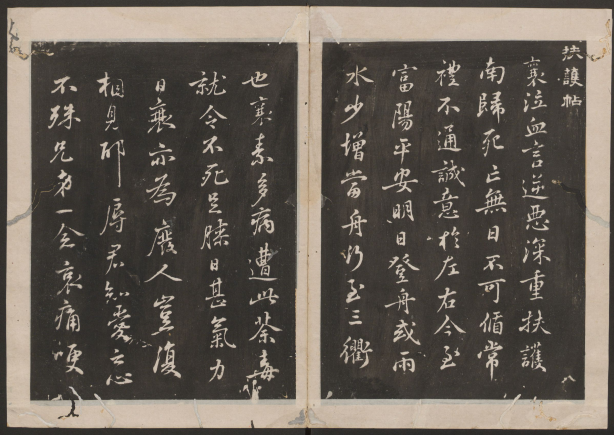 扶護帖
襄泣血言逆惡深重扶護
南歸死亡無日不可循常
禮不通誠意於左右今至
富陽平安明日登舟或雨
水少增當舟行至三衢
八
也襄素多病遭此荼毒
就令不死足膝日甚氣力
日衰亦為廢人豈復
相見邪辱君知愛之心
不殊兄弟一念哀痛哽